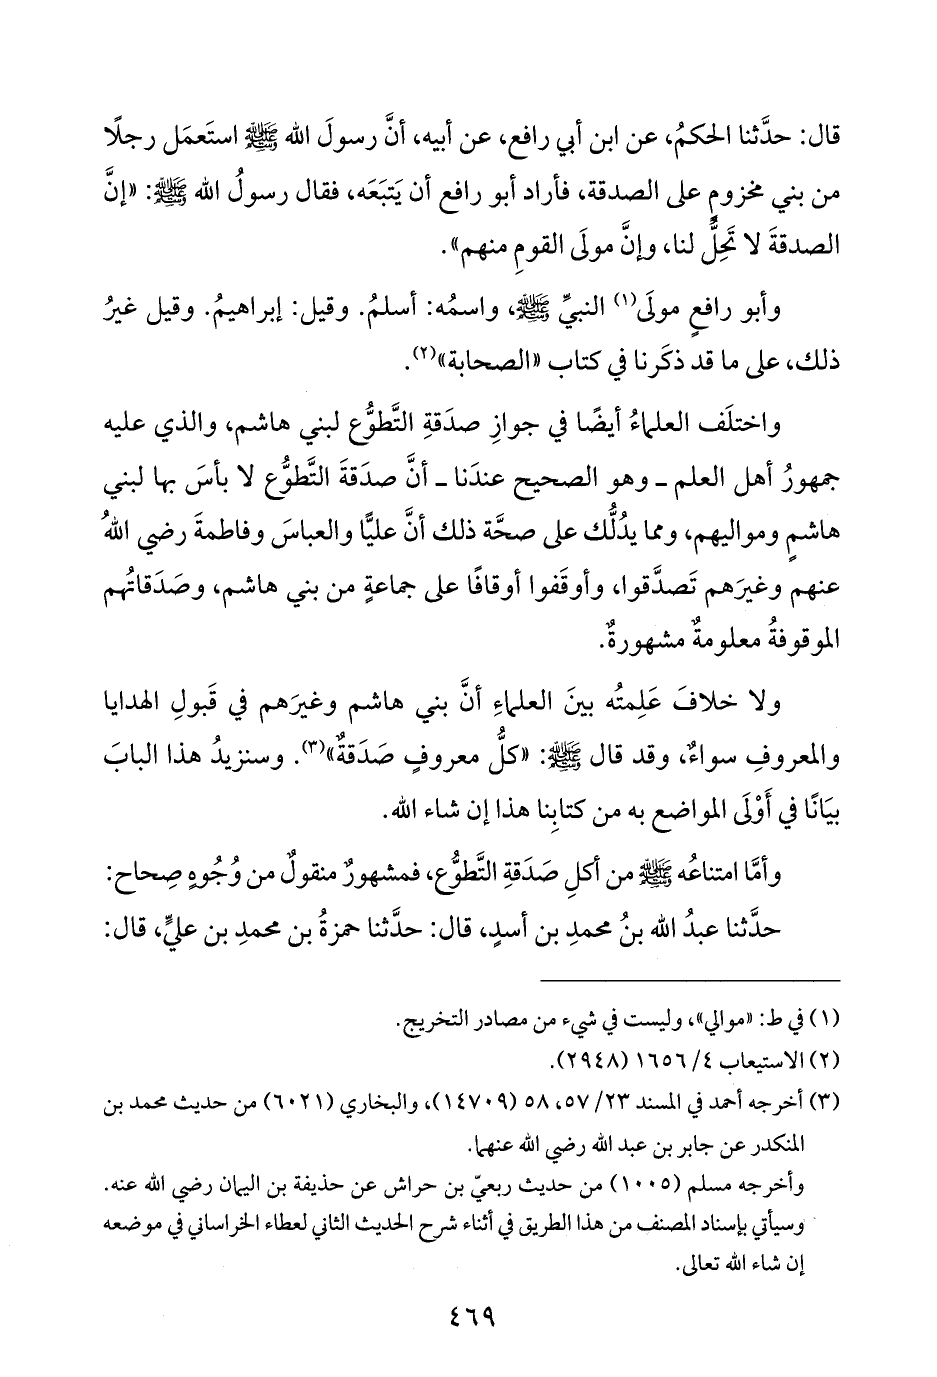 قال: حدَّثنا الحكمُ، عن ابن أبي رافع، عن أبيه، أنَّ رسولَ الله ﷺ استَعمَل رجلًا
من بني مخزومٍ على الصدقة، فأراد أبو رافع أن يَتبَعَه، فقال رسولُ الله ﷺ: «إنَّ
الصدقةَ لا تَحِلُّ لنا، وإنَّ مولَى القومِ منهم».
وأبو رافعٍ مولَى(١) النبيِّ ﷺ، واسمُه: أسلمُ. وقيل: إبراهيمُ. وقيل غيرُ
ذلك، على ما قد ذكَرنا في كتاب «الصحابة»(٢).
واختلَف العلماءُ أيضًا في جوازِ صدَقةِ التَّطوُّع لبني هاشم، والذي عليه
جمهورُ أهل العلم ـ وهو الصحيح عندَنا ـ أنَّ صدَقةَ التَّطوُّع لا بأسَ بها لبني
هاشمٍ ومواليهم، ومما يدُلُّك على صحَّة ذلك أنَّ عليًّا والعباسَ وفاطمةَ رضي اللهُ
عنهم وغيرَهم تَصدَّقوا، وأوقَفوا أوقافًا على جماعةٍ من بني هاشم، وصَدَقاتُهم
الموقوفةُ معلومةٌ مشهورةٌ.
ولا خلافَ عَلِمتُه بينَ العلماءِ أنَّ بني هاشم وغيرَهم في قَبولِ الهدايا
والمعروفِ سواءٌ، وقد قال ﷺ: «كلُّ معروفٍ صَدَقةٌ»(٣). وسنزيدُ هذا البابَ
بيَانًا في أَوْلَى المواضع به من كتابِنا هذا إن شاء الله.
وأمَّا امتناعُه ﷺ من أكلِ صَدَقةِ التَّطوُّع، فمشهورٌ منقولٌ من وُجُوهٍ صِحاح:
حدَّثنا عبدُ الله بنُ محمدِ بن أسدٍ، قال: حدَّثنا حمزةُ بن محمدِ بن عليٍّ، قال:
(١) في ط: «موالي»، وليست في شيء من مصادر التخريج.
(٢) الاستيعاب ٤/ ١٦٥٦ (٢٩٤٨).
(٣) أخرجه أحمد في المسند ٢٣/ ٥٧، ٥٨ (١٤٧٠٩)، والبخاري (٦٠٢١) من حديث محمد بن
المنكدر عن جابر بن عبد الله رضي الله عنهما.
وأخرجه مسلم (١٠٠٥) من حديث ربعيّ بن حراش عن حذيفة بن اليمان رضي الله عنه.
وسيأتي بإسناد المصنف من هذا الطريق في أثناء شرح الحديث الثاني لعطاء الخراساني في موضعه
إن شاء الله تعالى.
٤٦٩